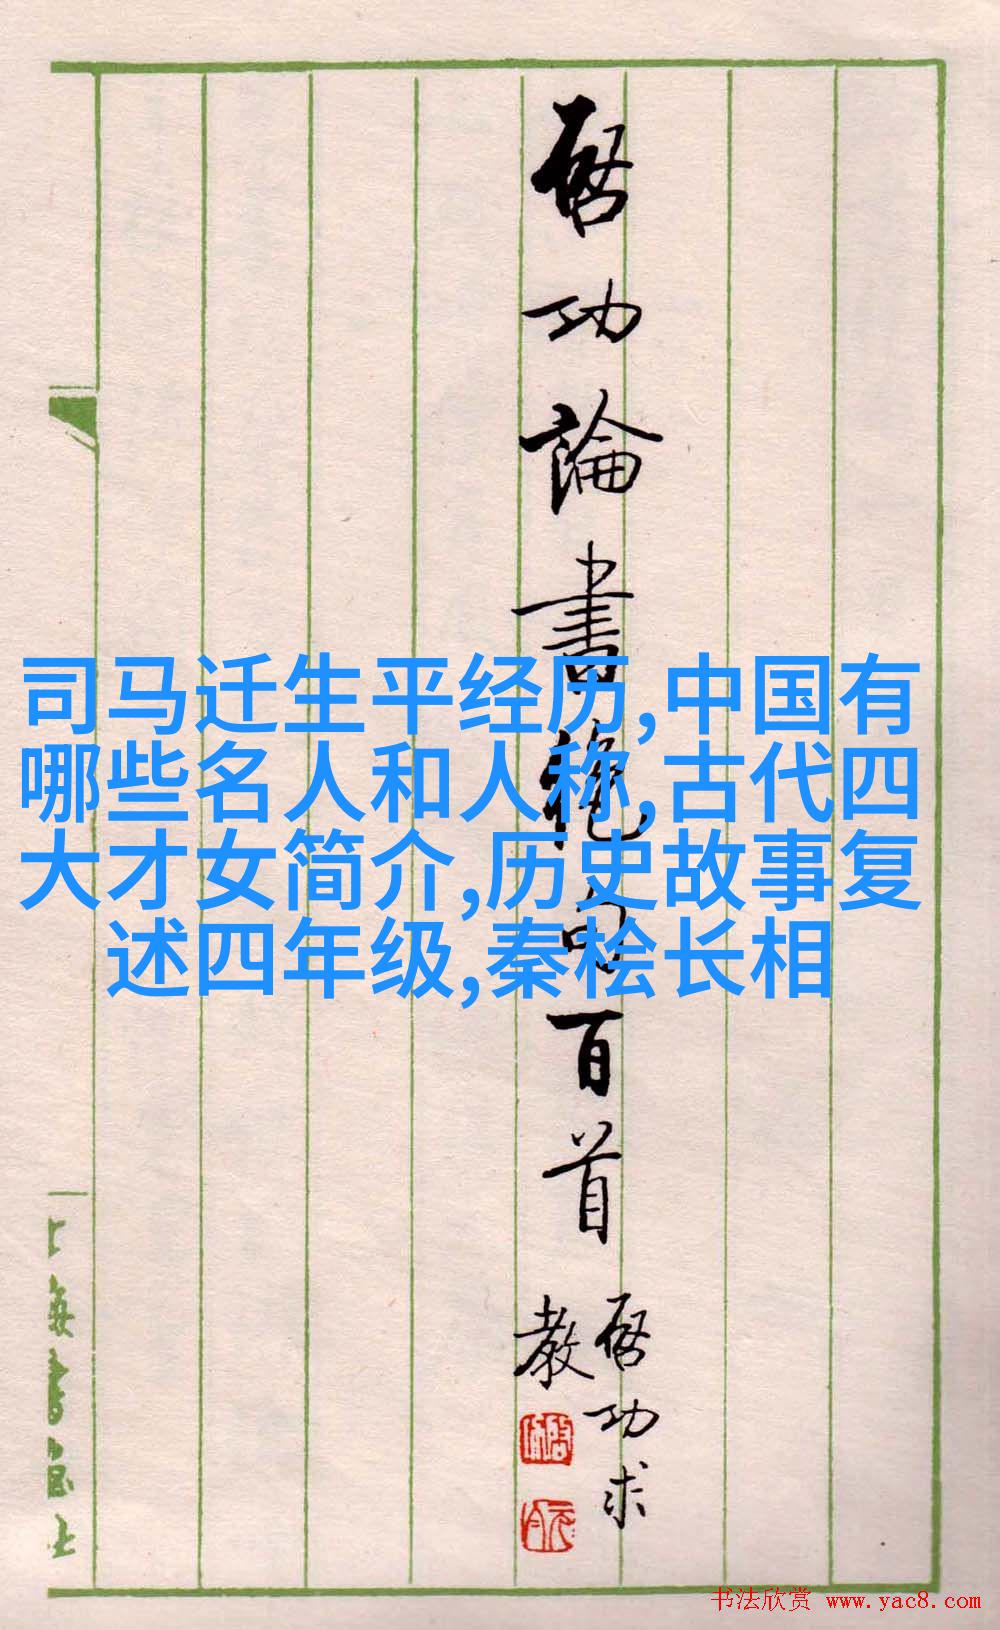 啓功論書絶句百首
啓功求
教
司马迁生平经历,中国有
哪些名人和人称,古代四
大才女简介,历史故事复
述四年级,秦桧长相
上海書画社
书法欣赏 www.yac8.com